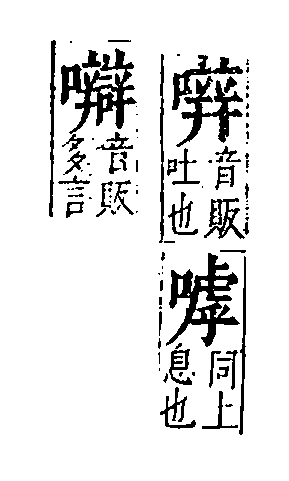 音販
吐也
嘑
同上
息也
音販
多言